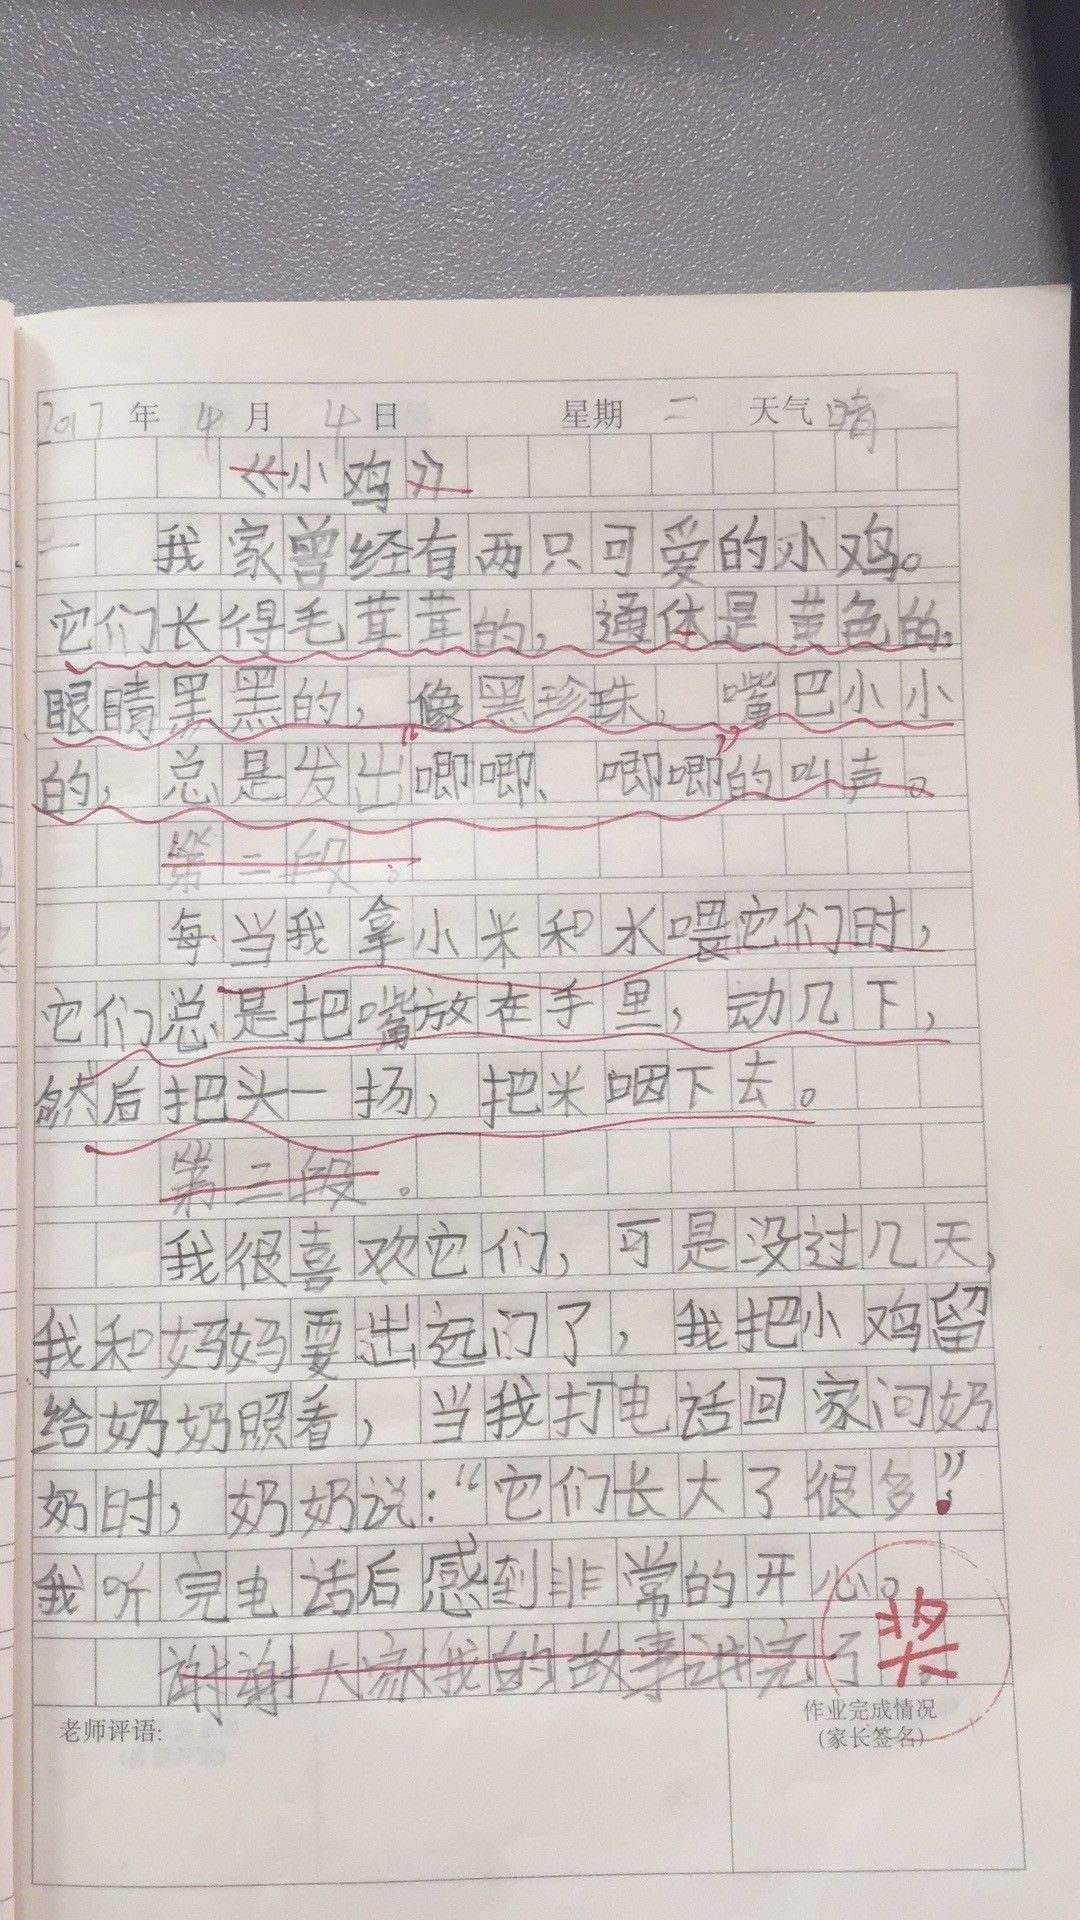 2017年4月4日 星期二 天气晴
《小鸡》
一 我家曾经有两只可爱的小鸡。
它们长得毛茸茸的，通体是黄色的，
眼睛黑黑的，像黑珍珠，嘴巴小小
的，总是发出“唧唧、唧唧”的叫声。
第二段。
每当我拿小米和水喂它们时，
它们总是把嘴放在手里，动几下，
然后把头一扬，把米咽下去。
第三段。
我很喜欢它们，可是没过几天，
我和妈妈要出远门了，我把小鸡留
给奶奶照看，当我打电话回家问奶
奶时，奶奶说：“它们长大了很多！”
我听完电话后感到非常的开心。
谢谢大家我的故事讲完了。
奖
老师评语:
作业完成情况
(家长签名)